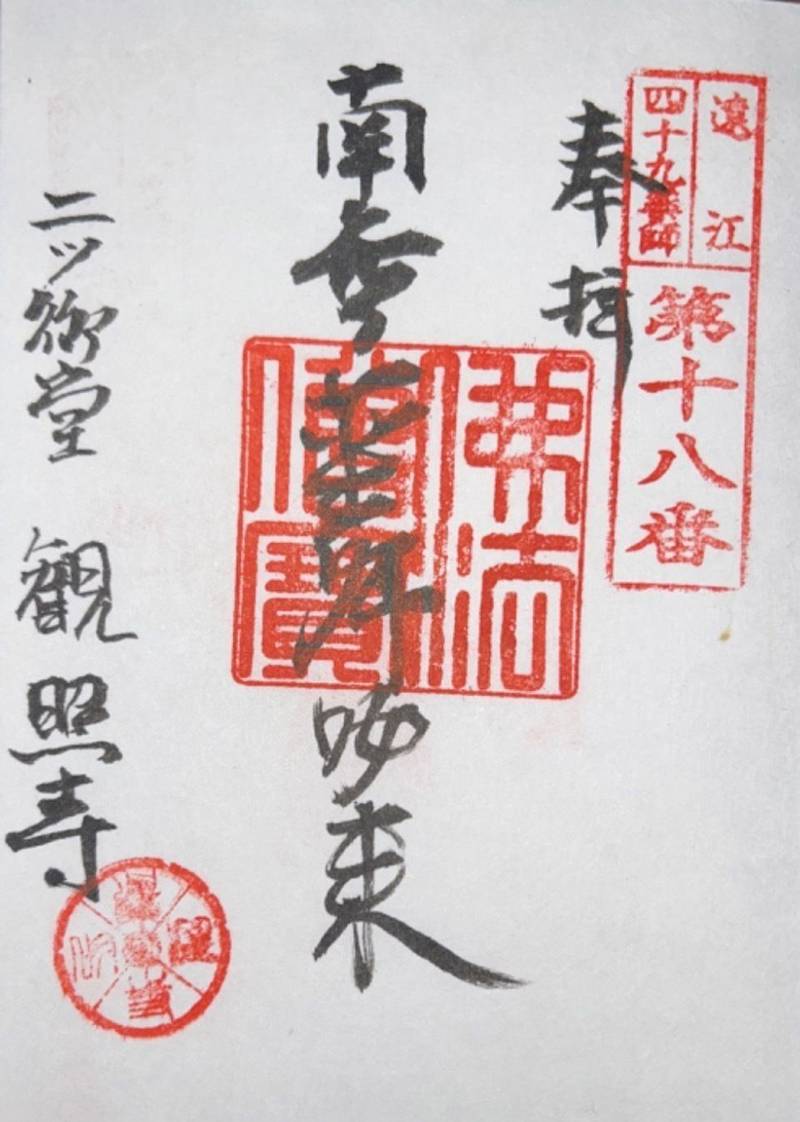 遠江
四十九薬師
第十八番
奉拝
南無薬師如来
佛法
僧寶
二ツ御堂 観照寺